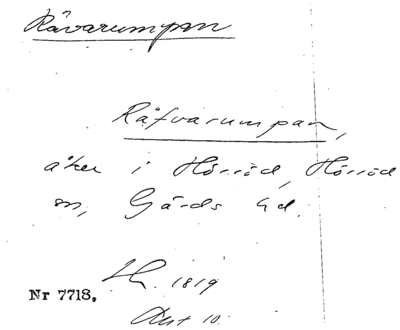 Rävarumpan
Räfvarumpan,
åker i Hörröd, Hörröd
sn, Gärds hd.
1819
Nr 7718.
Akt 10.